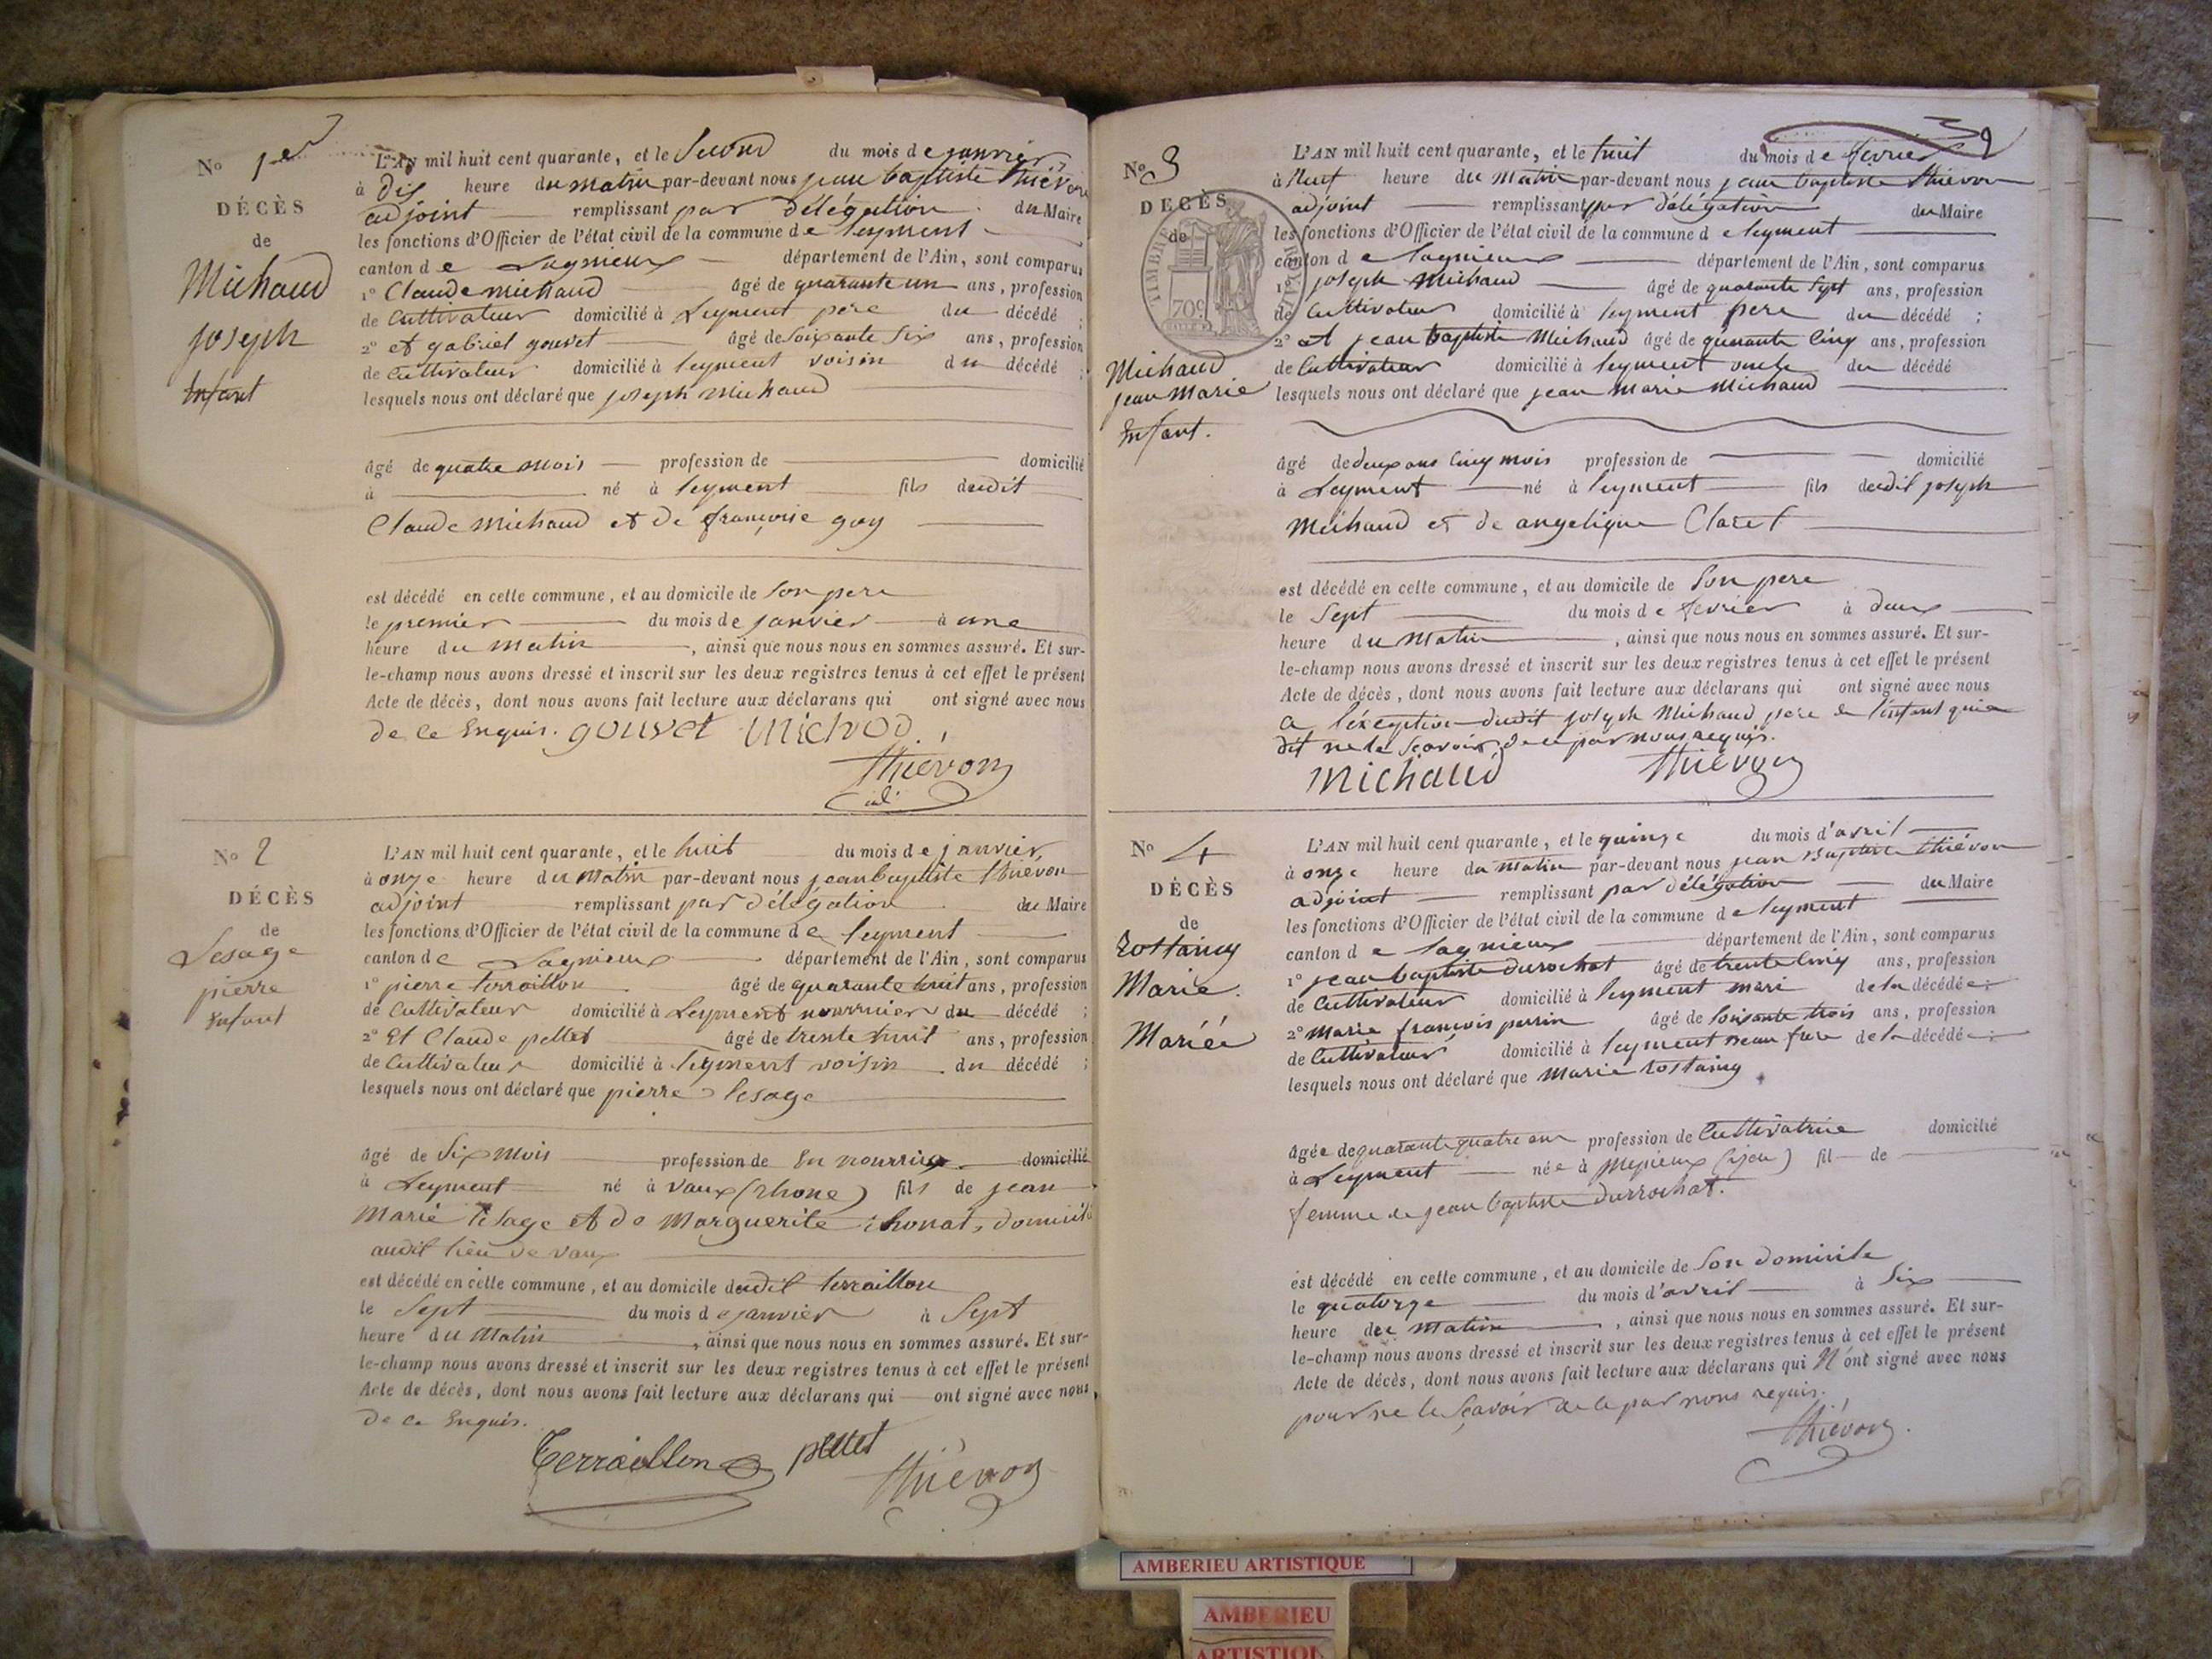 No 1er
DÉCÈS
de
Michaud
joseph
Enfant
L'AN mil huit cent quarante, et le Second du mois de janvier
à dix heure du matin par-devant nous jean baptiste thiévon
adjoint remplissant par délégation du Maire
les fonctions d'Officier de l'état civil de la commune de leyment
canton de Lagnieux département de l'Ain, sont comparus
1° Claude michaud âgé de quarante un ans, profession
de Cultivateur domicilié à Leyment père du décédé ;
2° et gabriel gouvet âgé de Soixante Six ans, profession
de Cultivateur domicilié à leyment voisin du décédé ;
lesquels nous ont déclaré que joseph michaud
âgé de quatre mois profession de domicilié
à né à leyment fils dudit
Claude michaud et de françoise guy
est décédé en cette commune, et au domicile de Son pere
le premier du mois de janvier à une
heure du matin, ainsi que nous nous en sommes assuré. Et sur-
le-champ nous avons dressé et inscrit sur les deux registres tenus à cet effet le présent
Acte de décès, dont nous avons fait lecture aux déclarans qui ont signé avec nous
de ce Enquis. gouvet michod
thiévon
adj.
No 2
DÉCÈS
de
Lesage
pierre
Enfant
L'AN mil huit cent quarante, et le huit du mois de janvier
à onze heure du matin par-devant nous jean baptiste thiévon
adjoint remplissant par délégation du Maire
les fonctions d'Officier de l'état civil de la commune de leyment
canton de Lagnieux département de l'Ain, sont comparus
1° pierre terraillon âgé de quarante huit ans, profession
de Cultivateur domicilié à Leyment nourricier du décédé ;
2° Et Claude pellet âgé de trente huit ans, profession
de Cultivateur domicilié à leyment voisin du décédé ;
lesquels nous ont déclaré que pierre lesage
âgé de Six mois profession de En nourrice domicilié
à Leyment né à vaux (rhone) fils de jean
marie leSage et de Marguerite chonat, domicilié
audit lieu de vaux
est décédé en cette commune, et au domicile dudit terraillon
le Sept du mois de janvier à Sept
heure du matin, ainsi que nous nous en sommes assuré. Et sur-
le-champ nous avons dressé et inscrit sur les deux registres tenus à cet effet le présent
Acte de décès, dont nous avons fait lecture aux déclarans qui ont signé avec nous,
de ce Enquis.
Terraillon pellet
thiévon
No 3
DÉCÈS
de
TIMBRE ROYAL
70c
Michaud
jean Marie
Enfant.
L'AN mil huit cent quarante, et le huit du mois de février
à Neuf heure du matin par-devant nous jean baptiste thiévon
adjoint remplissant par délégation du Maire
les fonctions d'Officier de l'état civil de la commune de leyment
canton de lagnieux département de l'Ain, sont comparus
1° joseph Michaud âgé de quarante Sept ans, profession
de Cultivateur domicilié à leyment pere du décédé ;
2° et jean baptiste Michaud âgé de quarante Cinq ans, profession
de Cultivateur domicilié à leyment oncle du décédé
lesquels nous ont déclaré que jean marie Michaud
âgé de deux ans Cinq mois profession de domicilié
à Leyment né à leyment fils dudit joseph
Michaud et de angelique Claret
est décédé en cette commune, et au domicile de Son pere
le Sept du mois de fevrier à deux
heure du matin, ainsi que nous nous en sommes assuré. Et sur-
le-champ nous avons dressé et inscrit sur les deux registres tenus à cet effet le présent
Acte de décès, dont nous avons fait lecture aux déclarans qui ont signé avec nous
a l'exception dudit joseph Michaud père de l'enfant qui a
dit ne le Sçavoir, de ce par nous requis.
Michaud thiévon
No 4
DÉCÈS
de
Rostaing
Marie
Mariée
L'AN mil huit cent quarante, et le quinze du mois d'avril
à onze heure du matin par-devant nous jean Baptiste thiévon
adjoint remplissant par délégation du Maire
les fonctions d'Officier de l'état civil de la commune de leyment
canton de lagnieux département de l'Ain, sont comparus
1° jean baptiste durochat âgé de trente Cinq ans, profession
de Cultivateur domicilié à leyment mari de la décédée ;
2° marie françois perrin âgé de Soixante trois ans, profession
de Cultivateur domicilié à leyment Beau frere de la décédée ;
lesquels nous ont déclaré que marie rostaing
âgée de quarante quatre ans profession de Cultivatrice domicilié
à Leyment née à mepieux (isere) fil de
femme de jean baptiste durrochat.
est décédé en cette commune, et au domicile de Son domicile
le quatorze du mois d'avril à Six
heure du matin, ainsi que nous nous en sommes assuré. Et sur-
le-champ nous avons dressé et inscrit sur les deux registres tenus à cet effet le présent
Acte de décès, dont nous avons fait lecture aux déclarans qui N'ont signé avec nous
pour ne le Sçavoir de ce par nous requis.
thiévon
AMBERIEU ARTISTIQUE
AMBERIEU
ARTISTIQUE